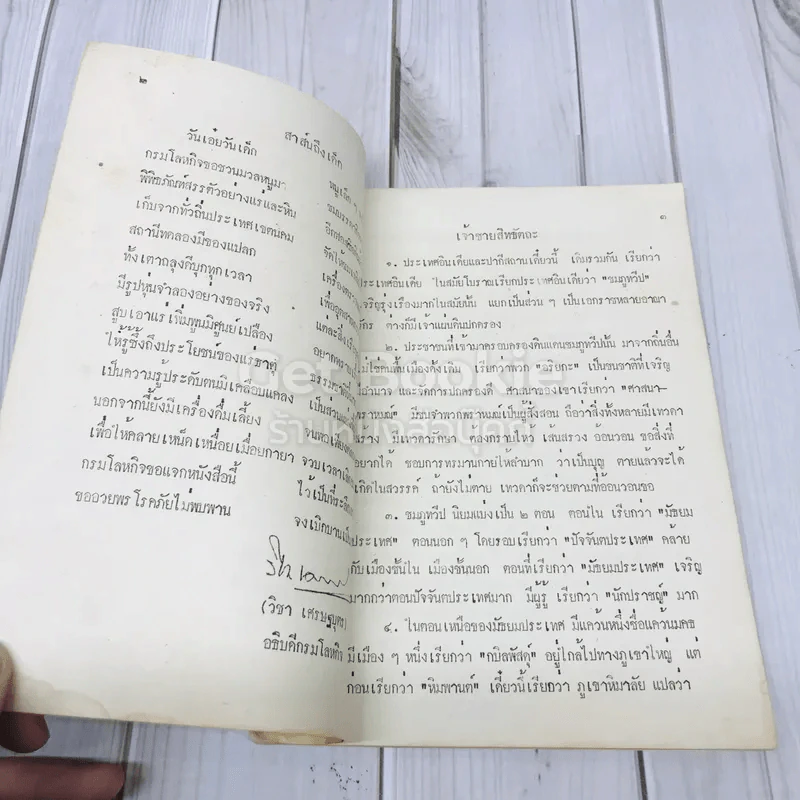 ๒
สาส์นถึงเด็ก
วันเอ๋ยวันเด็ก
กรมโลหกิจขอชวนมวลหนูมา
พิพิธภัณฑ์สรรตัวอย่างแร่และหิน
เก็บจากทั่วถิ่นประเทศเขตนคม
สถานีทดลองมีของแปลก
ทั้งเตาถลุงดีบุกทุกเวลา
มีรูปหุ่นจำลองอย่างของจริง
สูบเอาแร่เพิ่มพูนมิศูนย์เปลือง
ให้รู้ซึ้งถึงประโยชน์ของแร่ธาตุ
เป็นความรู้ประดับตนมิเคลือบแคลง
นอกจากนี้ยังมีเครื่องดื่มเลี้ยง
เพื่อให้คลายเหน็ดเหนื่อยเมื่อยกายา
กรมโลหกิจขอแจกหนังสือนี้
ขออวยพรโรคภัยไม่พบพาน
หนูเด็ก ๆ
จบเวลา
ไว้เป็นที่ระลึก
จงเบิกบาน
(วิชา เศรษฐบุตร)
อธิบดีกรมโลหกิจ
๓
เจ้าชายสิทธัตถะ
๑. ประเทศอินเดียและปากีสถานเดี๋ยวนี้ เดิมรวมกัน เรียกว่า
ประเทศอินเดีย ในสมัยโบราณเรียกประเทศอินเดียว่า "ชมภูทวีป"
เจริญรุ่งเรืองมากในสมัยนั้น แยกเป็นส่วน ๆ เป็นเอกราชหลายอาณา
จักร ต่างก็มีเจ้าแผ่นดินปกครอง
๒. ประชาชนที่เข้ามาครอบครองดินแดนชมภูทวีปนั้น มาจากถิ่นอื่น
ไม่ใช่คนพื้นเมืองดั้งเดิม เรียกว่าพวก "อริยกะ" เป็นชนชาติที่เจริญ
อำนาจ และจัดการปกครองดี ศาสนาของเขาเรียกว่า "ศาสนา-
พราหมณ์" มีชนจำพวกพราหมณ์เป็นผู้สั่งสอน ถือว่าสิ่งทั้งหลายมีเทวดา
สร้าง มีเทวดารักษา ต้องกราบไหว้ เส้นสรวง อ้อนวอน ขอสิ่งที่
อยากได้ ชอบการทรมานกายให้ลำบาก ว่าเป็นบุญ ตายแล้วจะได้
เกิดในสวรรค์ ถ้ายังไม่ตาย เทวดาก็จะช่วยตามที่อ้อนวอนขอ
๓. ชมภูทวีป นิยมแบ่งเป็น ๒ ตอน ตอนใน เรียกว่า "มัธยม
ประเทศ" ตอนนอก ๆ โดยรอบเรียกว่า "ปัจจันตประเทศ" คล้าย
กับเมืองชั้นใน เมืองชั้นนอก ตอนที่เรียกว่า "มัธยมประเทศ" เจริญ
มากกว่าตอนปัจจันตประเทศมาก มีผู้รู้ เรียกว่า "นักปราชญ์" มาก
๔. ในตอนเหนือของมัธยมประเทศ มีแคว้นหนึ่งชื่อแคว้นมคธ
มีเมือง ๆ หนึ่งเรียกว่า "กบิลพัสดุ์" อยู่ใกล้ไปทางภูเขาใหญ่ แต่
ก่อนเรียกว่า "หิมพานต์" เดี๋ยวนี้เรียกว่า ภูเขาหิมาลัย แปลว่า
Get Bookie
ร้านหนังสือนุ๊คกี้